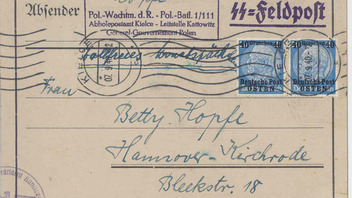 Absender
Hopfe
Pol.-Wachtm. d. R. - Pol.-Batl. 1/111
Abholepostamt Kielce - Leitstelle Kattowitz
General-Gouvernement Polen
SS-Feldpost
40 40
Deutsche Post
OSTEN
40 40
Deutsche Post
OSTEN
Frau
Betty Hopfe
Hannover-Kirchrode
Bleekstr. 18